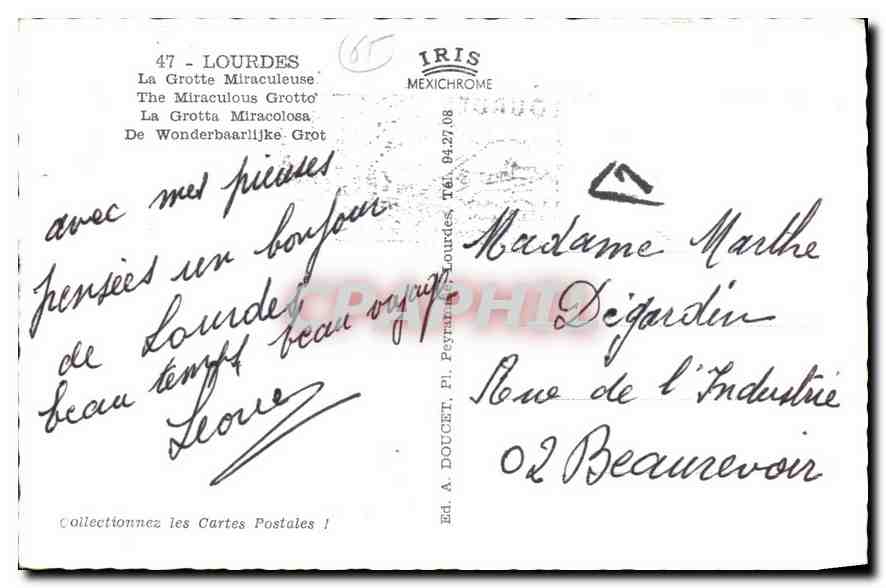 47 - LOURDES
La Grotte Miraculeuse
The Miraculous Grotto
La Grotta Miracolosa
De Wonderbaarlijke Grot
65
IRIS
MEXICHROME
avec mes pieuses
pensées un bonjour
de Lourdes
beau temps beau voyage
Leone
Collectionnez les Cartes Postales !
Ed. A. DOUCET, Pl. Peyramale, Lourdes, Tél. 94.27.08
Madame Marthe
Dégardin
Rue de l'Industrie
02 Beaurevoir
CPAPHIL